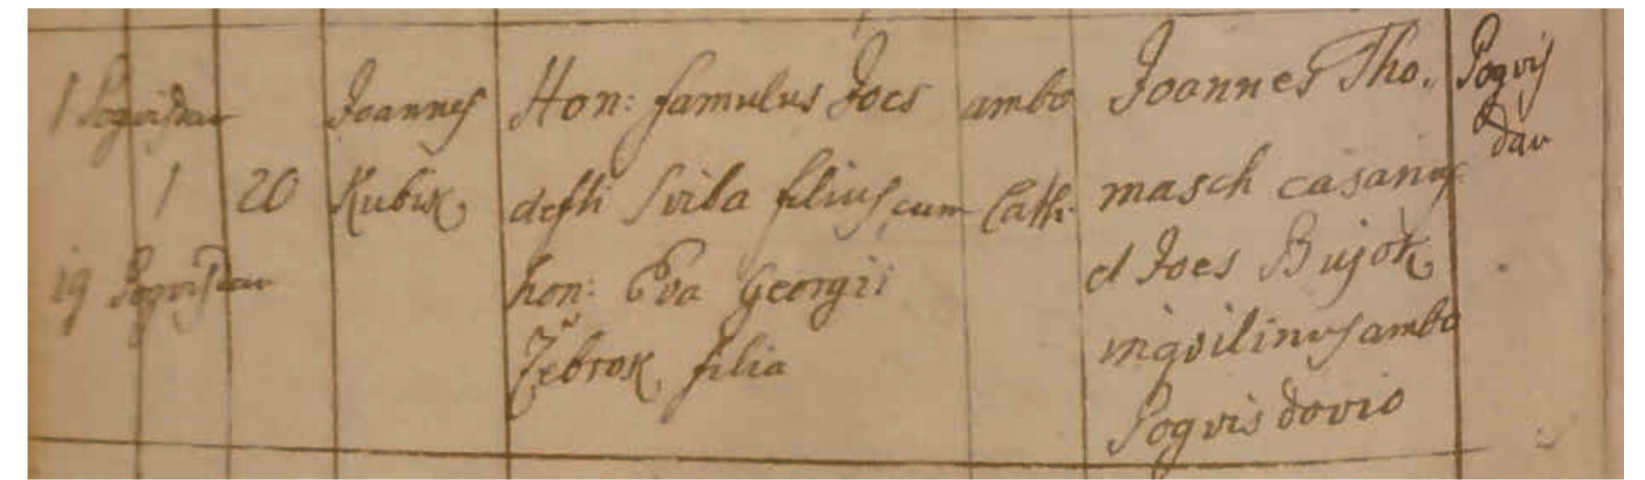 1 Pogvisdav
1 20
19 Pogvisdav
Joannes
Kubik
Hon: famulus Joes
defti Sviba filius, cum
hon: Eva Georgii
Žebrok, filia
ambo
Cath:
Joannes Tho,,
masch casarius
et Joes Bujok
inqvilinus ambo
Pogvisdovio
Pogvis
dav